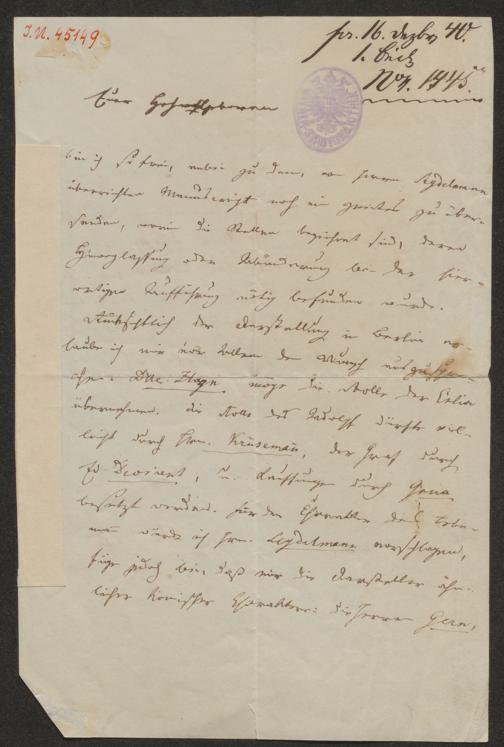 I.N. 45149
pr. 16. Dezbr 40.
1. Beil
No. 1845.
Euer Hochwohlgeboren
bin ich so frei, nebst zu dem, an Herrn Seydelmann
überreichten Manuscript noch ein zweites zu über-
senden, worin die Stellen bezeichnet sind, deren
Hinweglassung oder Abänderung bei der hier-
ortigen Aufführung nötig befunden wurde.
Rücksichtlich der Darstellung in Berlin er-
laube ich mir vor Allem den Wunsch auszuspre-
chen: Dlle. Hagn möge die Rolle der
übernehmen. Die Rolle des Adolf dürfte viel-
leicht durch Hrn. Krüseman, der Graf durch
Ed. Devrient, u. durch Grua
besetzt werden. Für den Charakter des
würde ich Hrn. Seydelmann vorschlagen,
füge jedoch bei, daß mir die Darsteller ähn-
licher komischer Charaktere: die Herren Gern,